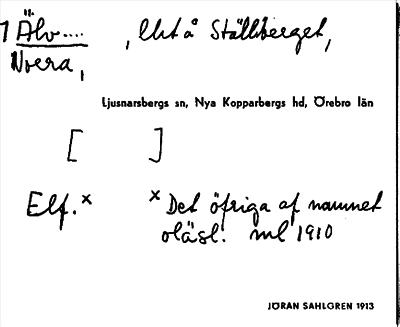 1 Älv.... , Urt å Ställberget,
Norra,
Ljusnarsbergs sn, Nya Kopparbergs hd, Örebro län
[ ]
Elf. x x Det öfriga af namnet
oläsl. ml 1910
JÖRAN SAHLGREN 1913